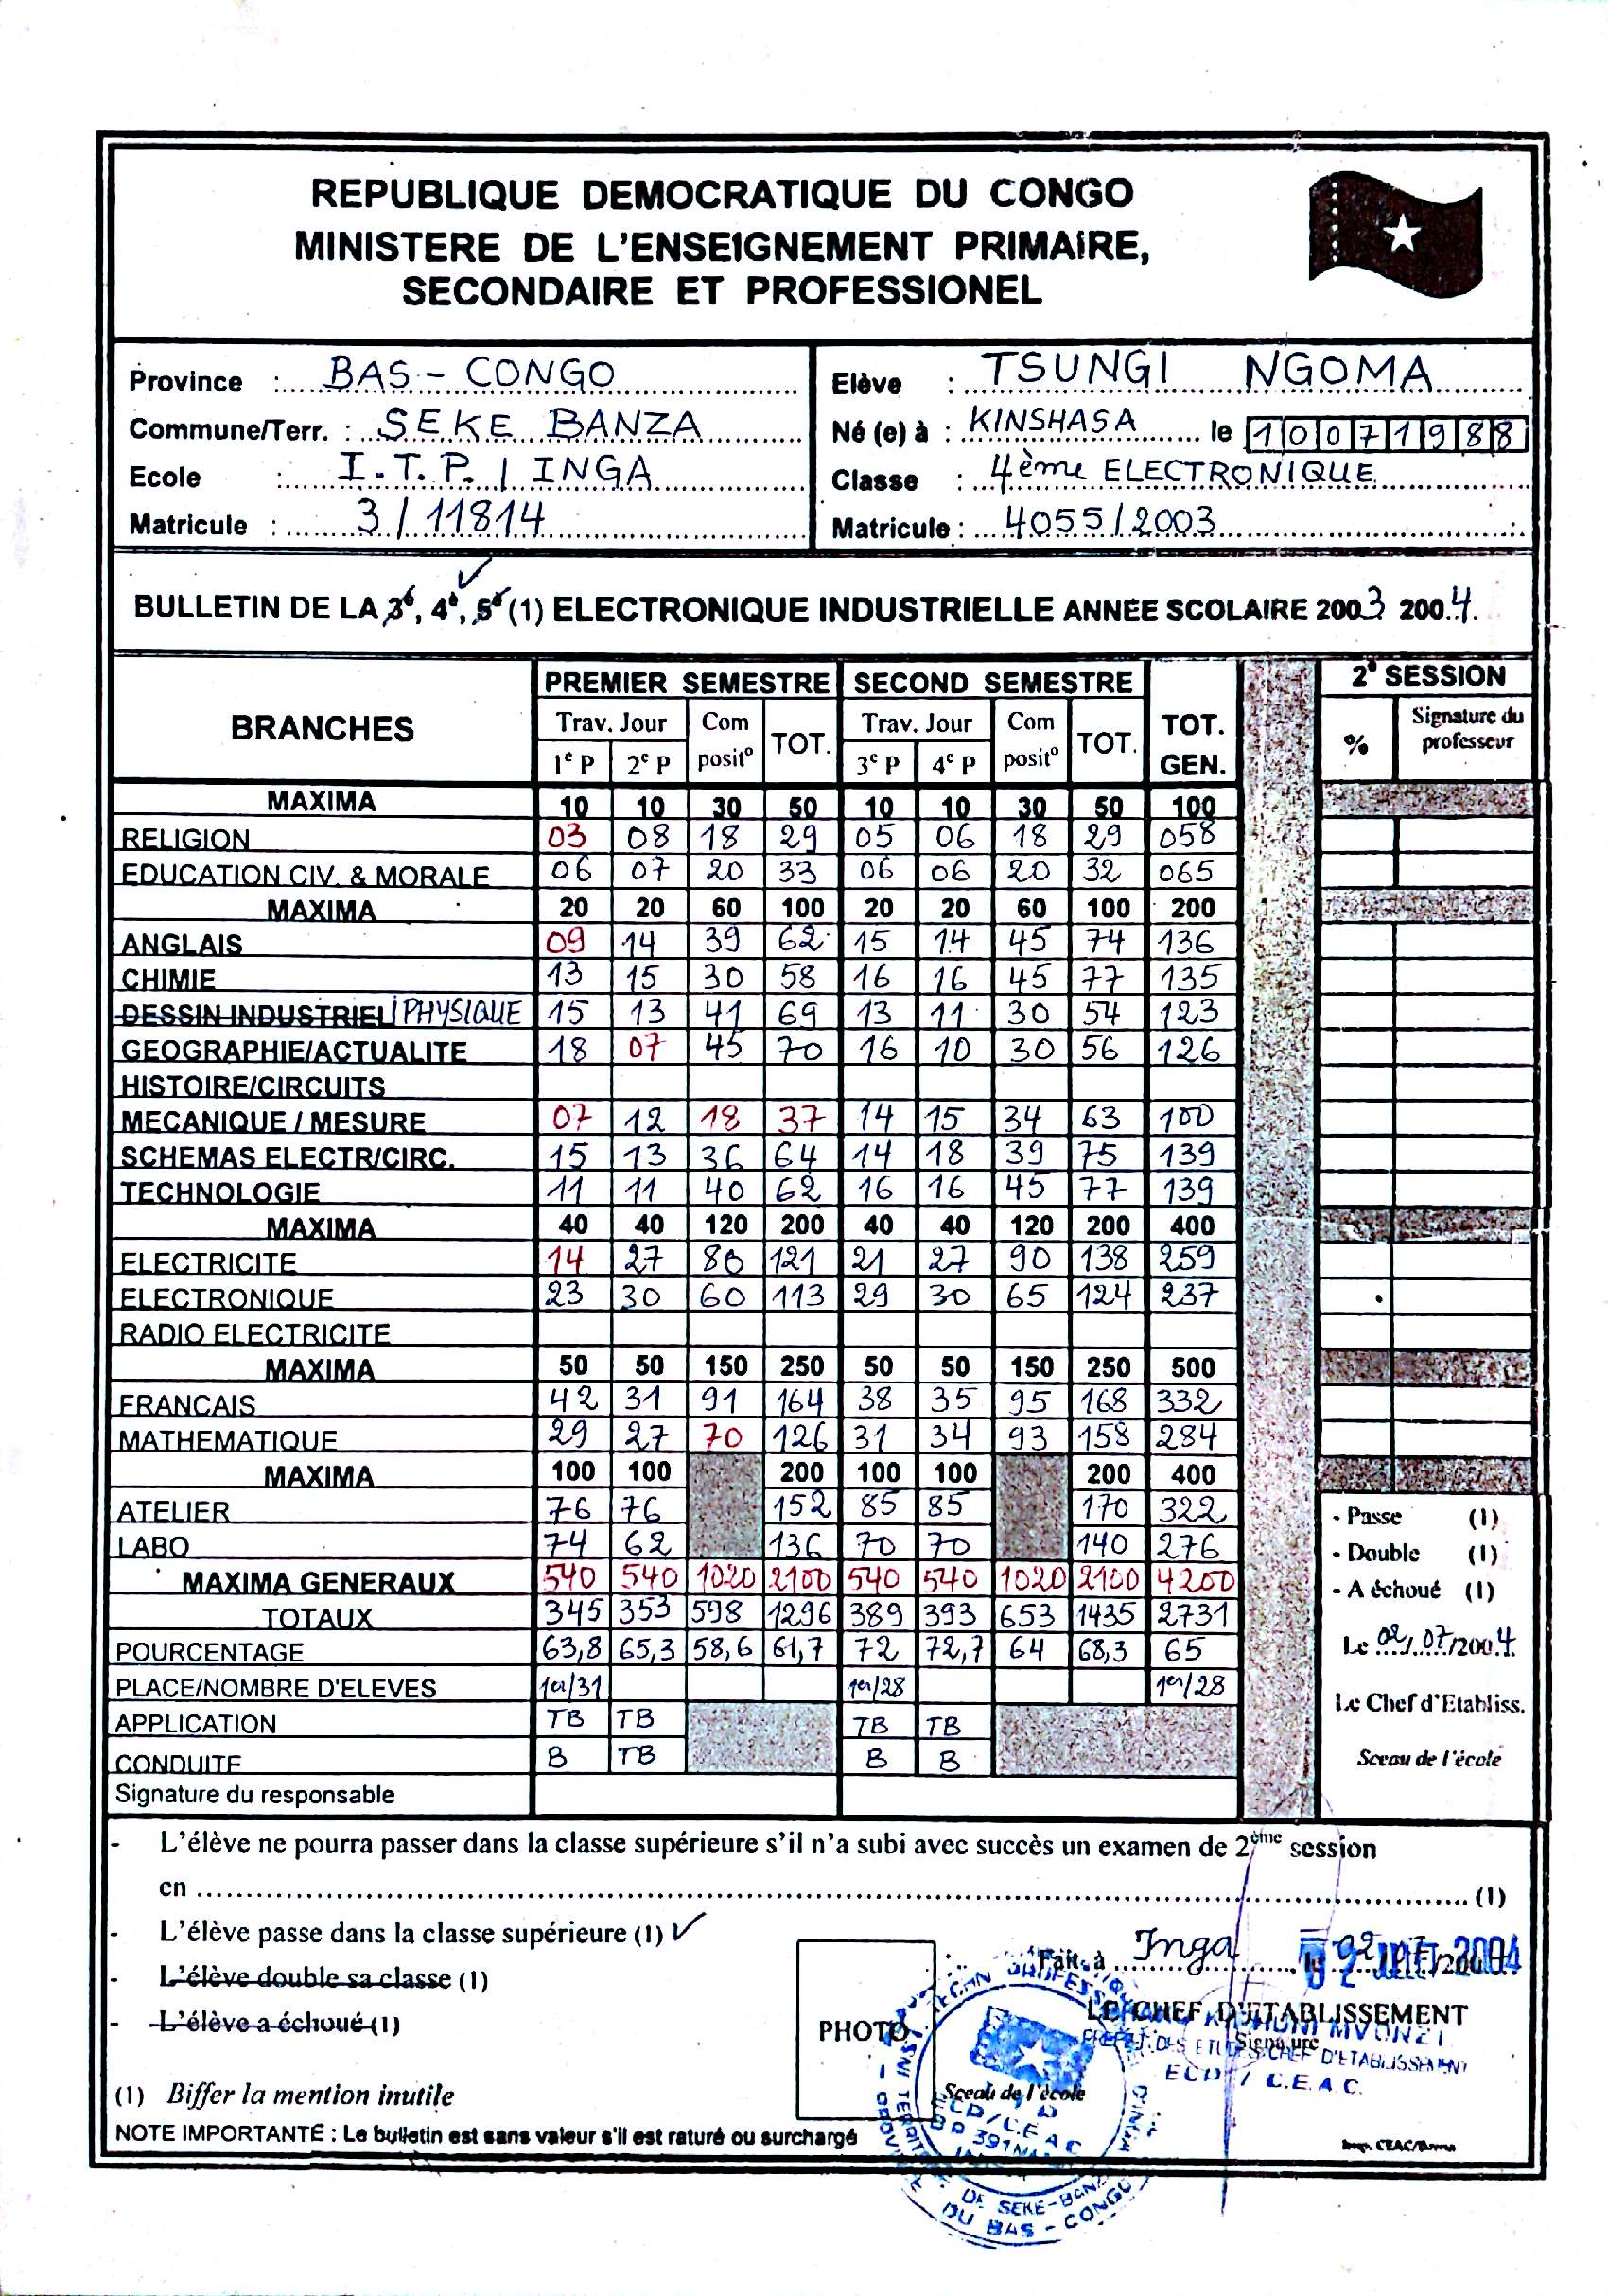 REPUBLIQUE DEMOCRATIQUE DU CONGO
MINISTERE DE L'ENSEIGNEMENT PRIMAIRE,
SECONDAIRE ET PROFESSIONEL
Province : BAS - CONGO
Commune/Terr. : SEKE BANZA
Ecole : I.T.P. / INGA
Matricule : 3 / 11814
Elève : TSUNGI NGOMA
Né (e) à : KINSHASA le 10071988
Classe : 4ème ELECTRONIQUE
Matricule : 4055/2003
BULLETIN DE LA 3è, 4è, 5è (1) ELECTRONIQUE INDUSTRIELLE ANNEE SCOLAIRE 2003 2004.
BRANCHES PREMIER SEMESTRE SECOND SEMESTRE TOT. GEN. 2è SESSION
Trav. Jour Com posit° TOT. Trav. Jour Com posit° TOT. % Signature du professeur
1e P 2e P 3e P 4e P
MAXIMA 10 10 30 50 10 10 30 50 100
RELIGION 03 08 18 29 05 06 18 29 058
EDUCATION CIV. & MORALE 06 07 20 33 06 06 20 32 065
MAXIMA 20 20 60 100 20 20 60 100 200
ANGLAIS 09 14 39 62 15 14 45 74 136
CHIMIE 13 15 30 58 16 16 45 77 135
DESSIN INDUSTRIEL / PHYSIQUE 15 13 41 69 13 11 30 54 123
GEOGRAPHIE/ACTUALITE 18 07 45 70 16 10 30 56 126
HISTOIRE/CIRCUITS
MECANIQUE / MESURE 07 12 18 37 14 15 34 63 100
SCHEMAS ELECTR/CIRC. 15 13 36 64 14 18 39 75 139
TECHNOLOGIE 11 11 40 62 16 16 45 77 139
MAXIMA 40 40 120 200 40 40 120 200 400
ELECTRICITE 14 27 80 121 21 27 90 138 259
ELECTRONIQUE 23 30 60 113 29 30 65 124 237
RADIO ELECTRICITE
MAXIMA 50 50 150 250 50 50 150 250 500
FRANCAIS 42 31 91 164 38 35 95 168 332
MATHEMATIQUE 29 27 70 126 31 34 93 158 284
MAXIMA 100 100 200 100 100 200 400
ATELIER 76 76 152 85 85 170 322
LABO 74 62 136 70 70 140 276
MAXIMA GENERAUX 540 540 1020 2100 540 540 1020 2100 4200
TOTAUX 345 353 598 1296 389 393 653 1435 2731
POURCENTAGE 63,8 65,3 58,6 61,7 72 72,7 64 68,3 65
PLACE/NOMBRE D'ELEVES 1er/31 1er/28 1er/28
APPLICATION TB TB TB TB
CONDUITE B TB B B
Signature du responsable
- Passe (1)
- Double (1)
- A échoué (1)
Le 02/07/2004.
Le Chef d'Etabliss.
Sceau de l'école
- L'élève ne pourra passer dans la classe supérieure s'il n'a subi avec succès un examen de 2ème session
en (1)
- L'élève passe dans la classe supérieure (1) ✓
- L'élève double sa classe (1)
- L'élève a échoué (1)
(1) Biffer la mention inutile
NOTE IMPORTANTE : Le bulletin est sans valeur s'il est raturé ou surchargé
PHOTO
Fait à Inga, le 02/07/2004
02 JUIL 2004
LE CHEF D'ETABLISSEMENT
Signature
MVONZI
PREFET DES ETUDES/CHEF D'ETABLISSEMENT
ECD / C.E.A.C.
Sceau de l'école
ECD / C.E.A.C
DE SEKE-BANZA
DU BAS - CONGO
Imp. CEAC/Boma